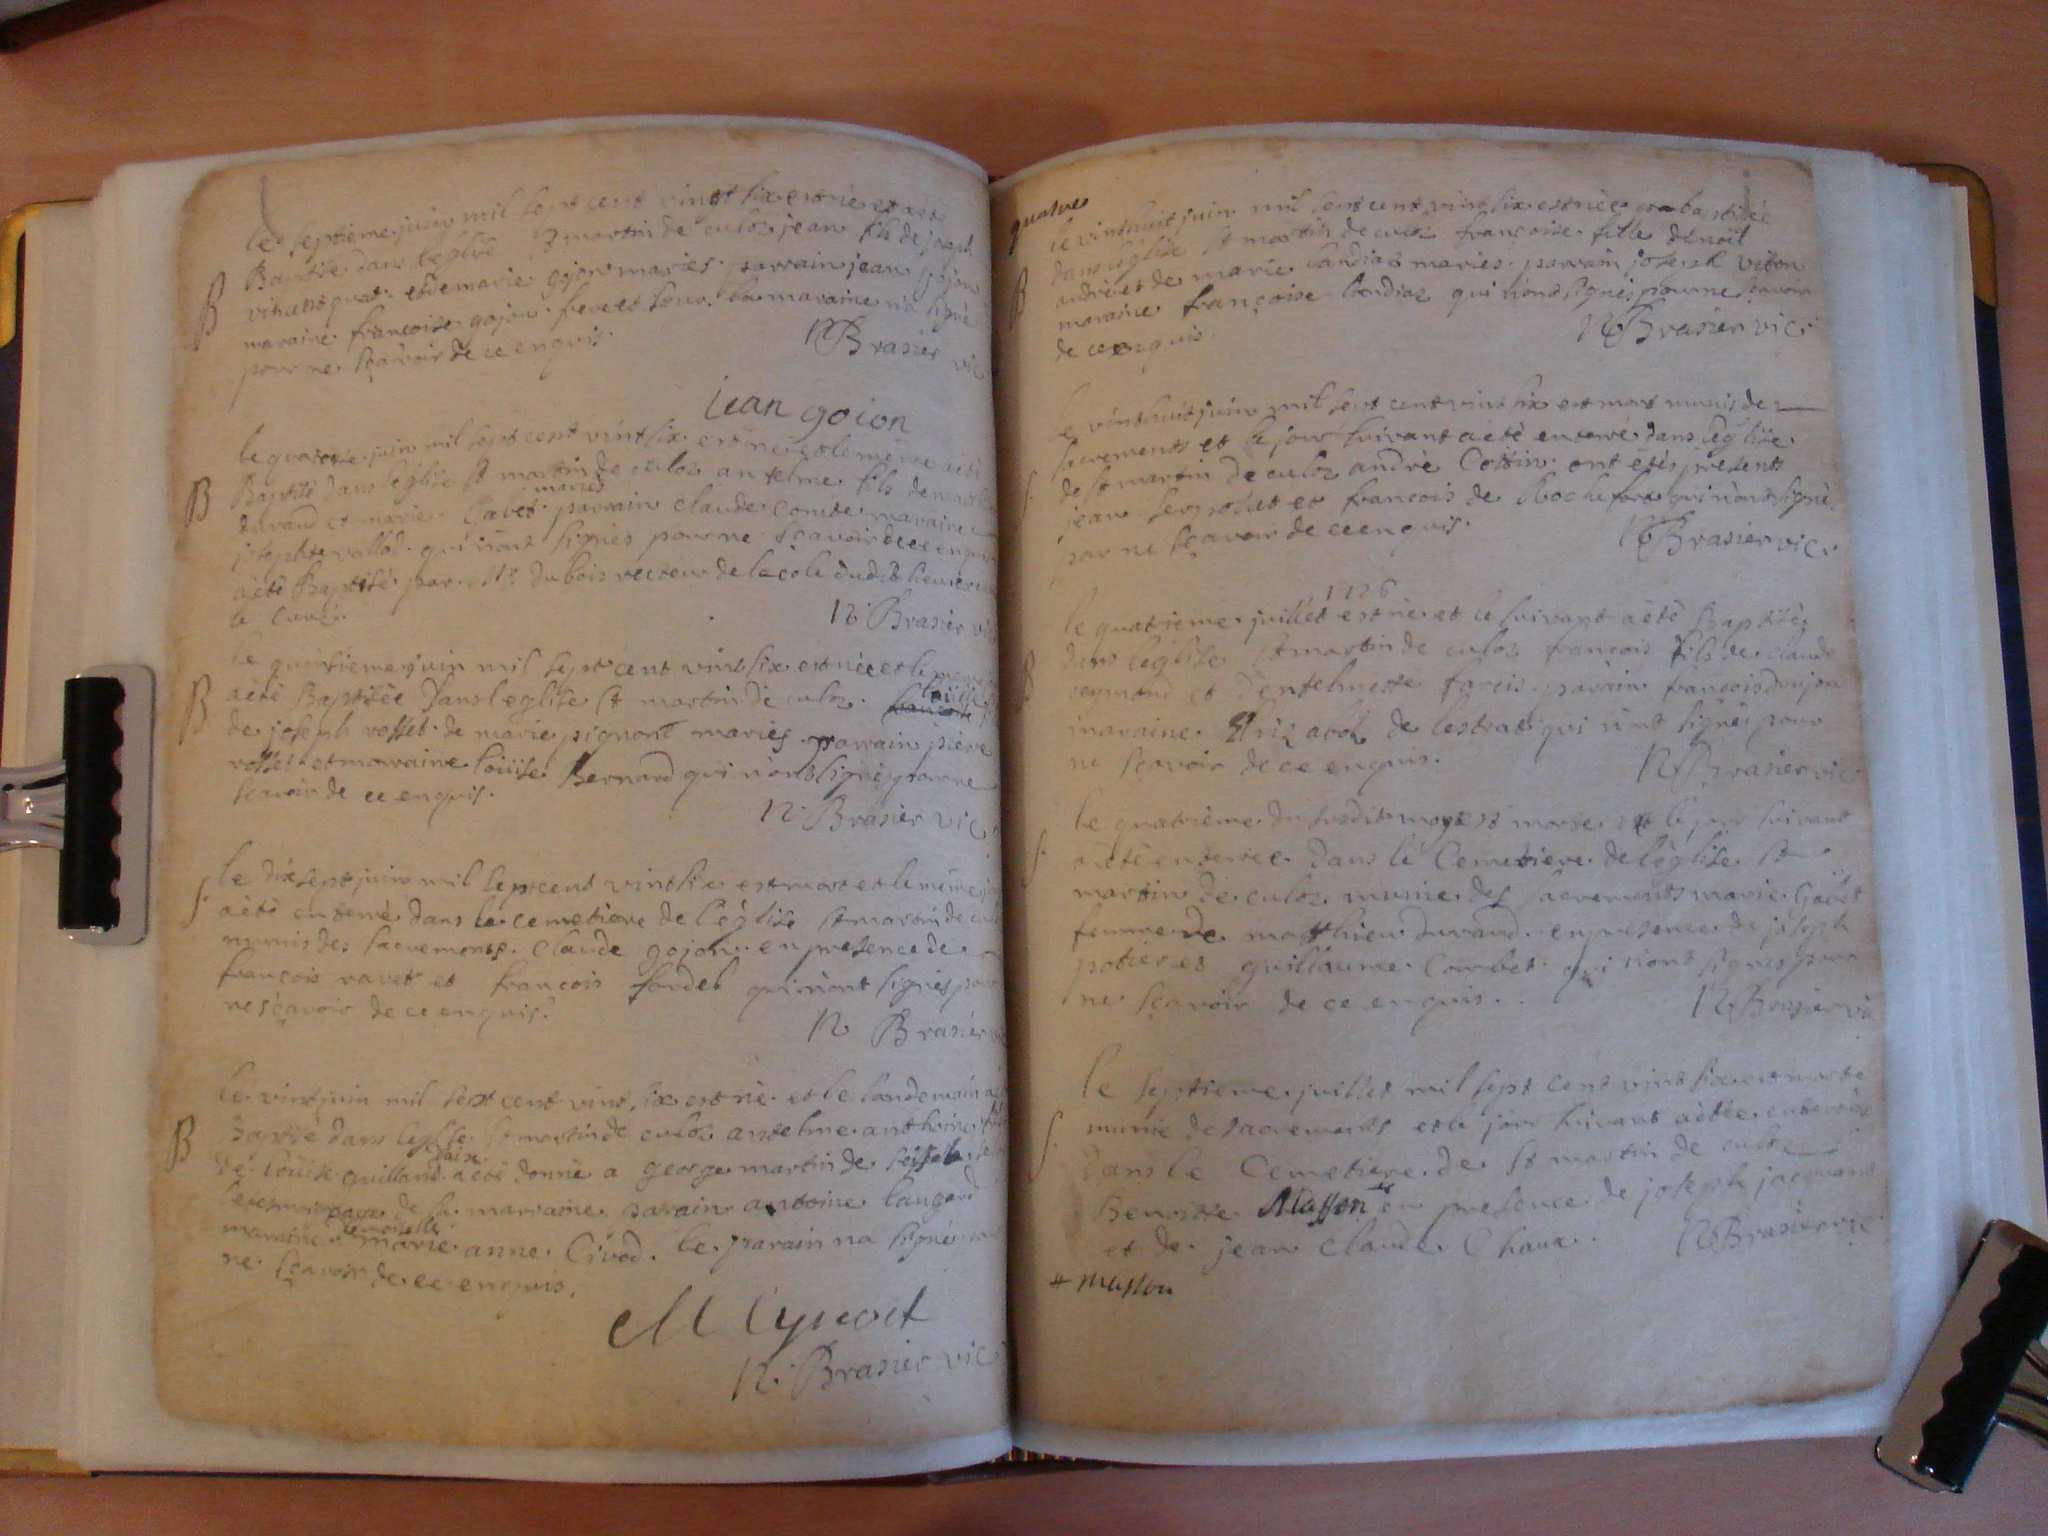 le septieme juin mil sept cent vingt six est né et a été
B Baptisé dans leglise St martin de culoz jean fils de joseph
et de marie gojon mariés parrain jean gojon
maraine francoise gojon frere et seur la maraine n'a signé
pour ne sçavoir de ce enquis
N Brasier vic
jean goion
le juin mil sept cent vint six est né et le meme a été
B Baptisé dans leglise St martin de culoz antelme fils de
durand et marie Gavet mariés parrain claude Comte maraine
josephte vallod qui n'ont signés pour ne scavoir de ce enquis
a été Baptisé par Mr dubois recteur de lecole dudit lieu
le Curé
N Brasier vic
le quinsieme juin mil sept cent vint six est née et le meme
B a été Baptisée dans leglise St martin de culoz louise
de joseph rosset de marie pignont mariés parrain pierre
rosset et marraine louise Bernard qui n'ont signés pour ne
scavoir de ce enquis
N Brasier vic
le dix sept juin mil sept cent vint six est mort et le même jour
S a été enterré dans le cemetiere de l'église St martin de culoz
munis des sacrements claude gojon en presence de
françois ravet et francois fardel qui n'ont signés pour
ne sçavoir de ce enquis
N Brasier
le vint juin mil sept cent vint six est né et le landemain a été
B Baptisé dans leglise St martin de culoz antelme anthoine fils
de loüise quilland a été donné a george martin de
de la marraine parain antoine
maraine demoiselle marie anne Civod le parain na signé pour
ne scavoir de ce enquis
M Cyvoct
N Brasier vic
quatre
le vint huit juin mil sept cent vint six est née et a baptisée
dans leglise St martin de culoz françoise fille de noël
B andré et de marie landiaz mariés parrain joseph viton
maraine françoise landiaz qui n'ont signés pour ne scavoir
de ce enquis
N Brasier vic
le vint huit juin mil sept cent vint six est mort munis de
sacrements et le jour suivant a été enterré dans l'église
S de St martin de culoz andré Cottin ont étés presents
jean et françois de Rochefort qui n'ont signé
par ne sçavoir de ce enquis
N Brasier vic
1726
le quatrieme juillet est né et le suivant a été Baptisé
dans l'église St martin de culoz françois fils de claude
B et d'entelmette parain francois
maraine de lestrat qui n'ont signés pour
ne scavoir de ce enquis
N Brasier vic
le quatrième du susdit moys est morte et le jour suivant
S a été enterrée dans le Cemetiere de l'église St
martin de culoz munie des sacrements marie Gavet
femme de matthieu durand en presence de joseph
potier et guillaume Corbet qui n'ont signés pour
ne scavoir de ce enquis
N Brasier vic
le septieme juillet mil sept cent vint six est morte
S munie de sacrements et le jour suivant a été enterrée
dans le Cemetiere de St martin de culoz
Benoitte Masson en presence de joseph jacquand
et de jean claude Chaux
N Brasier vic
# masson